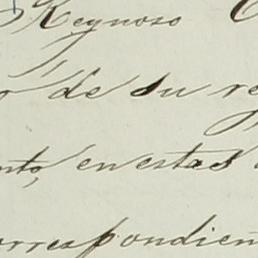 Reynoso
de su re
nto, en estas
orrespondien